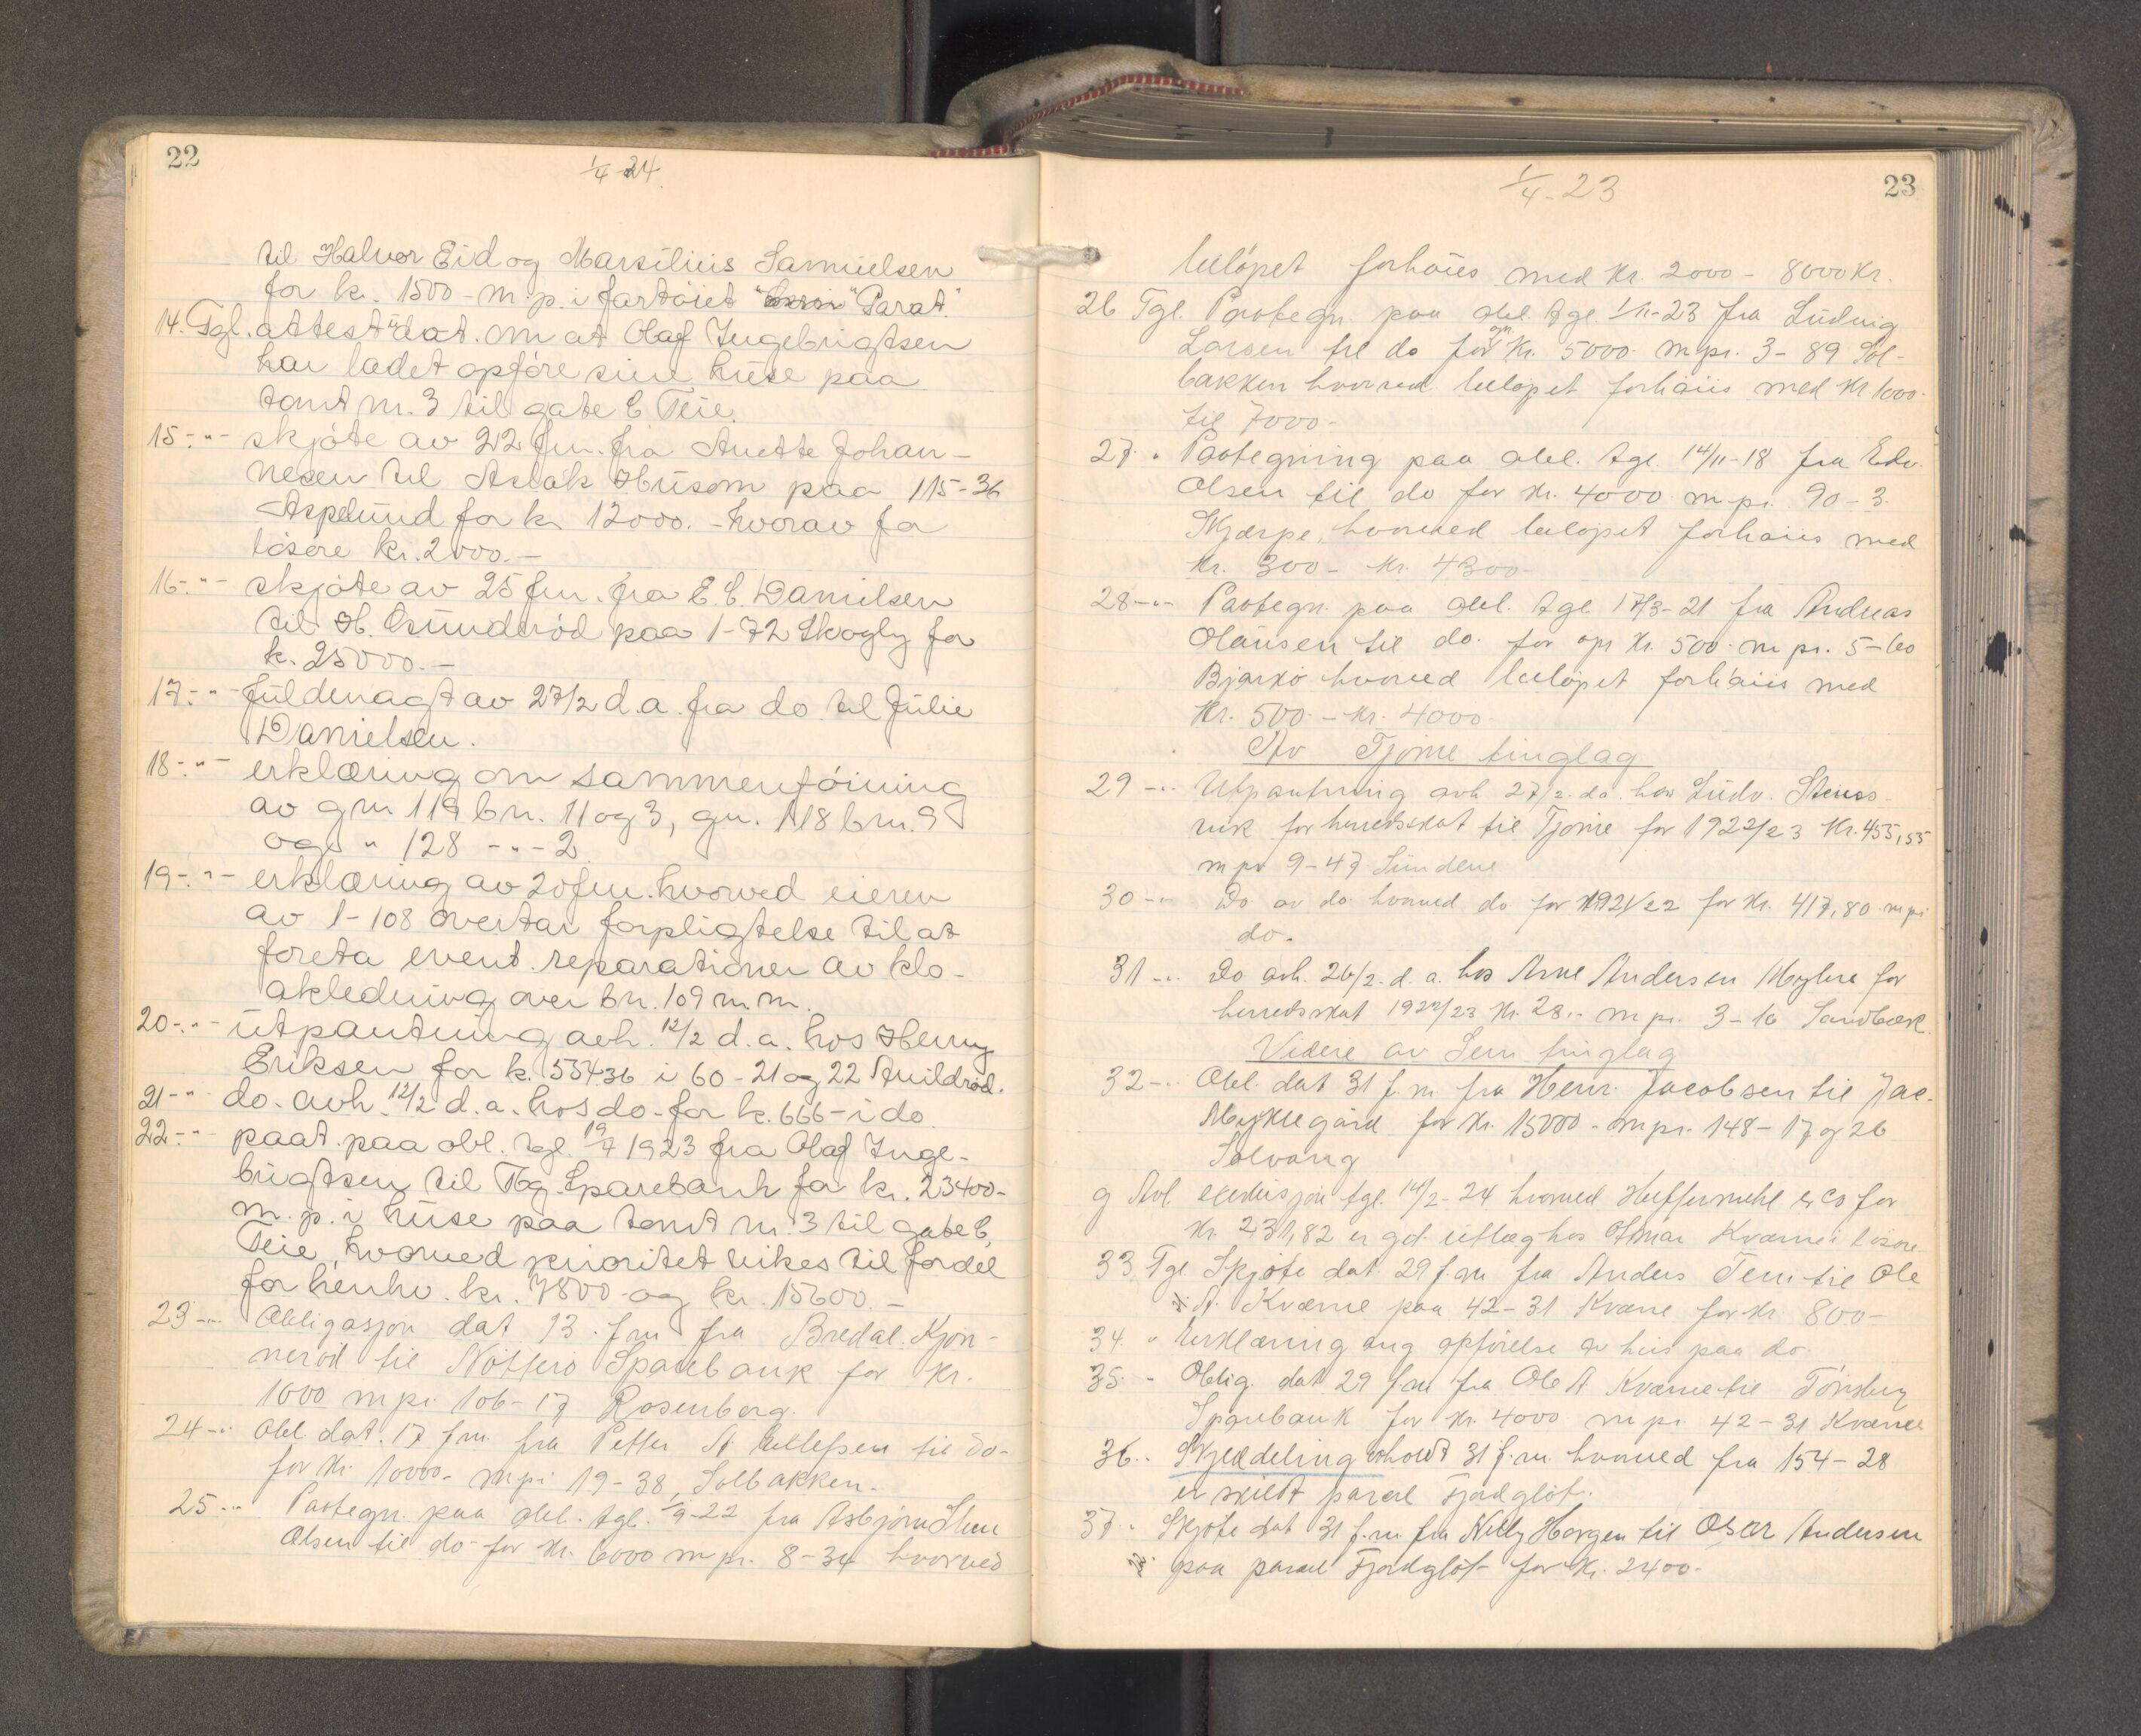 22
1/4-24.
til Halvor Eid og Marsilius Samuelsen
for kr. 1500 - m. p. i fartøiet "Parat".
14. Tgl. attest udat. om at Olaf Ingebrigtsen
har ladet opføre sin huse paa
tomt nr. 3 til gate C Teie.
15 -"- skjøte av 22 f.m. fra Anette Johan-
nesen til Aslak Husom paa 115-36
Aspelund for kr 12000. - hvorav for
løsøre kr. 2000.-
16 -"- skjøte av 25 f.m. fra E. C. Danielsen
til H. Gundersød paa 1-72 Skogly for
k. 25000.-
17 -"- fuldmagt av 27/2 d.a. fra do til Julie
Danielsen.
18 -"- erklæring om sammenføining
av gnr 119 bn. 11 og 3, gn. 118 bn. 9
og " 128 -"- 2
19 -"- erklæring av 20 f.m. hvorved eieren
av 1-108 overtar forpligtelse til at
foreta event. reparationer av klo-
akledning over bn. 109 m. m.
20 -"- utpantning avh. 12/2 d.a. hos Henry
Eriksen for k. 55436 i 60-21 og 22 Smidsrød.
21 -"- do. avh. 12/2 d.a. hos do. for k. 666- i do
22 -"- paat. paa obl. tgl. 19/7 1923 fra Olaf Inge-
brigtsen til Tbg. Sparebank for kr. 23400-
m. p. i huse paa tomt nr. 3 til gate C,
Teie, hvorved prioritet vikes til fordel
for henhv. kr. 7800- og kr. 15600.-
23 -"- Obligasjon dat 13 f.m fra Bredal. Kjøn-
nerød til Nøtterø Sparebank for kr.
1000 m pr. 106-17 Rosenberg.
24 -"- Obl. dat. 17 f.m. fra Petter A. Ellefsen til do-
for kr. 10000- m pr 19-38, Solbakken.
25 -"- Paategn. paa obl. tgl. 1/9-22 fra Asbjørn Sten
Olsen til do for kr. 6000 m pr. 8-34 hvorved
1/4-23
23
beløpet forhøies med kr. 2000 - 8000 kr.
26 Tgl. Paategn. paa obl. tgl 1/11-23 fra Ludvig
Larsen til do for opr. kr. 5000. m pr. 3-89 Sol-
bakken hvorved beløpet forhøies med kr 1000.
til 7000-
27. " Paategning paa obl. tgl. 14/11-18 fra Edv.
Olsen til do for kr. 4000 m pr. 90-3.
Skjærpe, hvorved beløpet forhøies med
kr. 300- kr. 4300-
28 -"- Paategn. paa obl. tgl 17/3-21 fra Andreas
Olausen til do. for opr kr. 500. m pr. 5-60
Bjarkø hvorved beløpet forhøies med
kr. 500.- kr. 4000-
Av Tjøme tinglag
29 -"- Utpantning avh 27/2. da. hos Ludv. Stens-
vik for herredsskat til Tjøme for 1922/23 kr. 455,55
m pr 9-47 Sundene
30 -"- Do av do hvorved do for 1921/22 for kr. 417,80 m pr
do.
31 -"- Do avh. 26/2. d. a. hos Arne Andersen Møglere for
herredsskat 1922/23 kr. 28.- m pr. 3-16 Sandbæk.
Videre av Sem tinglag
32 -"- Obl. dat 31 f.m. fra Henr. Jacobsen til Jac.
Myklegård for kr. 15000- m pr. 148-17 og 26
Solvang
g Avl exekusjon tgl. 14/2-24 hvorved Huffermehl & Co for
kr. 231,82 er git utlæg hos Otmar Kværne i løsøre
33 Tgl. Skjøte dat 29 f.m fra Anders Tem til Ole
A. Kværne paa 42-31 Kværne for kr 800-
34. " Erklæring ang opførelse av hus paa do.
35. " Oblig. dat 29 f.m fra Ole A Kværne til Tønsberg
Sparebank for kr. 4000 m pr. 42-31 Kværne
36. " Skylddeling avholdt 31 f.m. hvorved fra 154-28
er skildt parcel Fjordgløt.
37. " Skjøte dat 31 f.m. fra Nelly Horgen til Oscar Andersen
paa parcel Fjordgløt for kr. 2400-